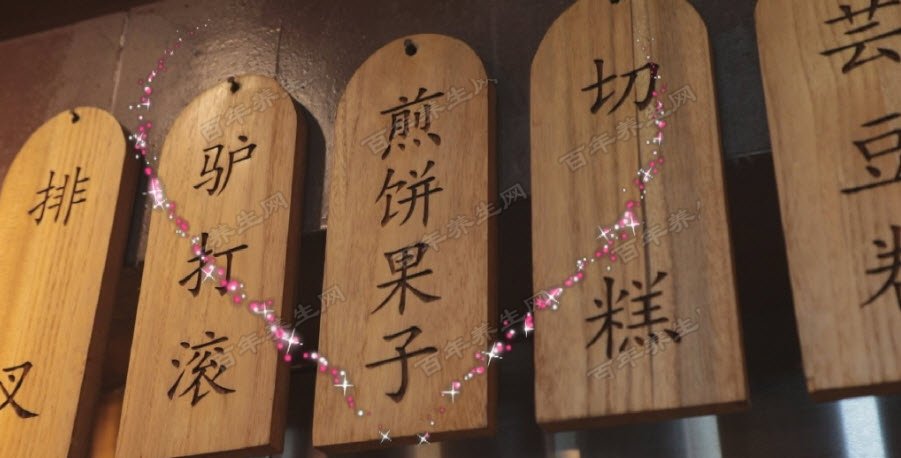 排
叉
驴打滚
煎饼果子
切糕
芸豆卷
百年养生网
百年养生网
百年养生网
百年养生网
百年养生网
百年养生网
百年养生网
百年养生网
百年养生
百年养生